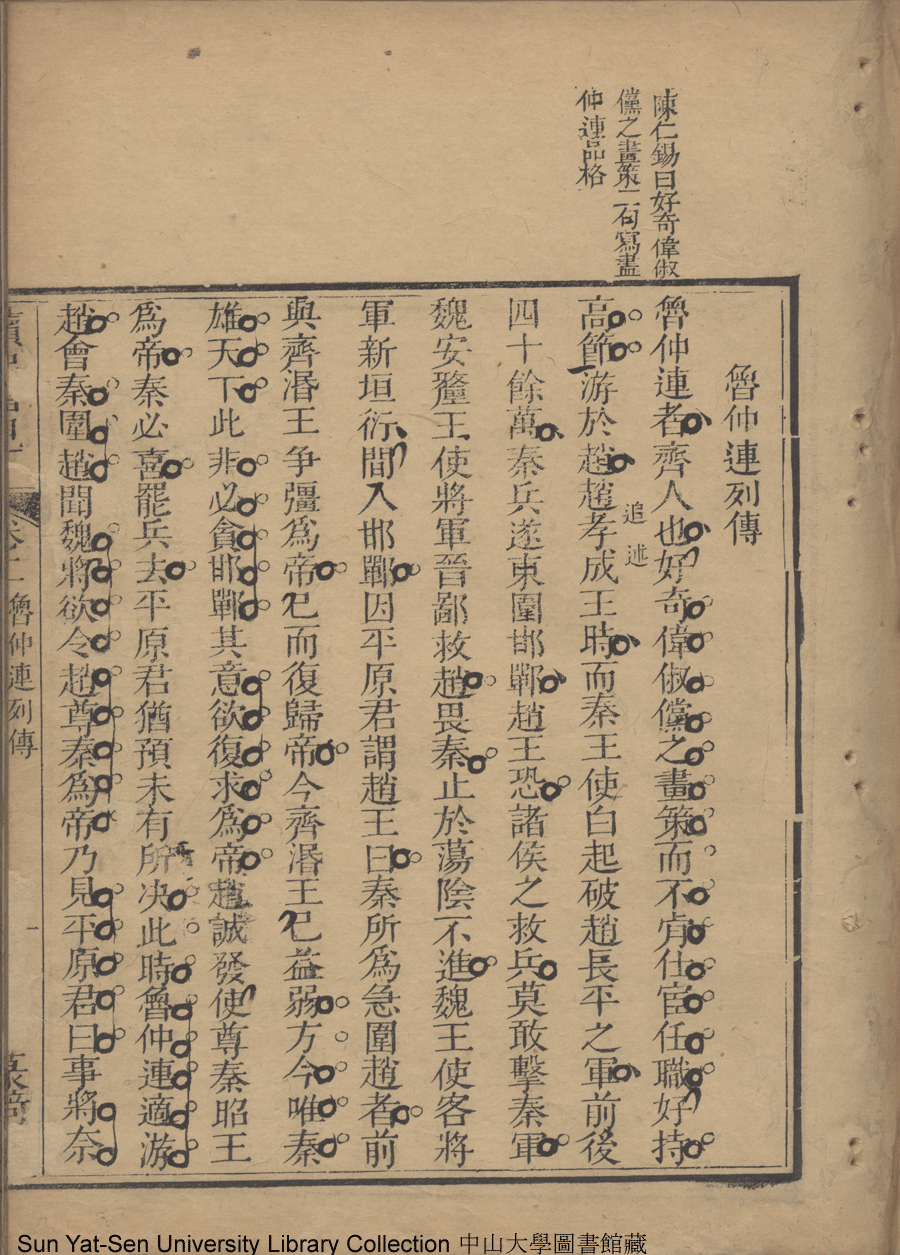 陳仁錫曰好奇偉俶
儻之畫策二句寫盡
仲連品格
魯仲連列傳
魯仲連者齊人也好奇偉俶儻之畫策而不肯仕宦任職好持
高節游於趙趙孝成王時而秦王使白起破趙長平之軍前後
追述
四十餘萬秦兵遂東圍邯鄲趙王恐諸侯之救兵莫敢擊秦軍
魏安釐王使將軍晉鄙救趙畏秦止於蕩陰不進魏王使客將
軍新垣衍間入邯鄲因平原君謂趙王曰秦所為急圍趙者前
與齊湣王争彊為帝已而復歸帝今齊湣王已益弱方今唯秦
雄天下此非必貪邯鄲其意欲復求為帝趙誠發使尊秦昭王
為帝秦必喜罷兵去平原君猶預未有所决此時魯仲連適游
趙會秦圍趙聞魏將欲令趙尊秦為帝乃見平原君曰事將奈
卷二 魯仲連列傳
Sun Yat-Sen University Library Collection 中山大學圖書館藏